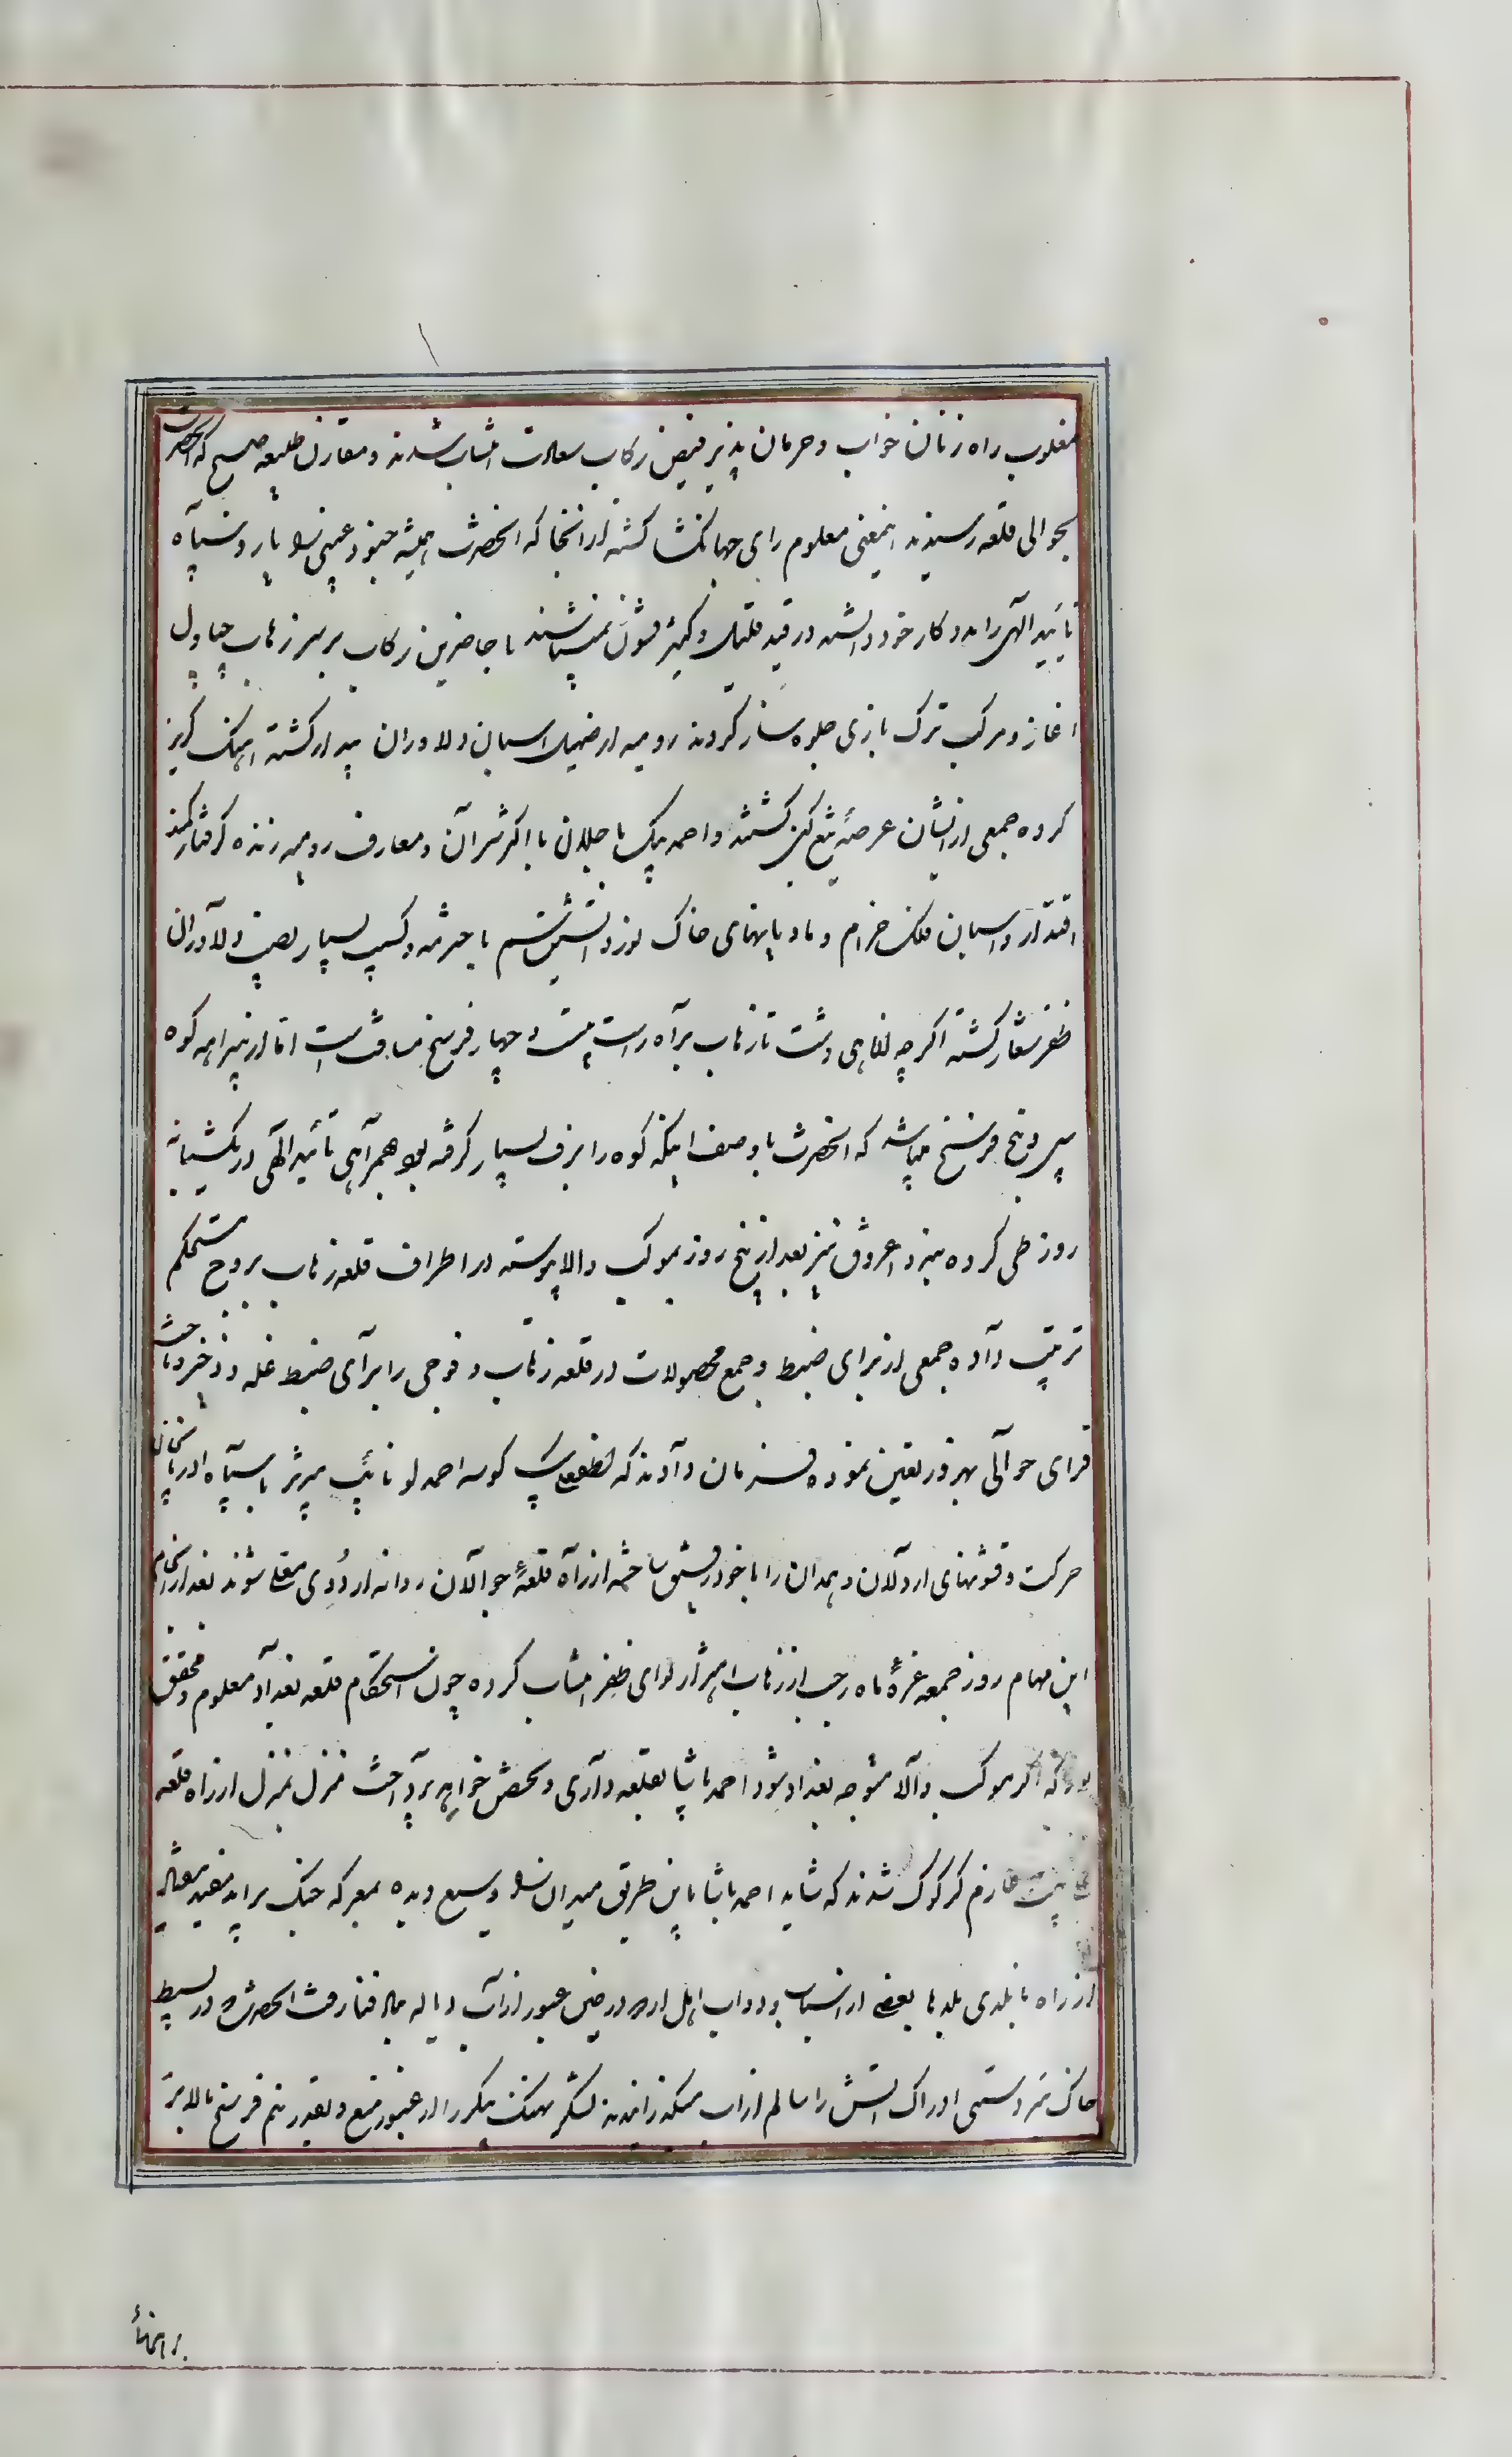 مغلوب راه زنان خواب و حرمان پذیر فیض رکاب سعادت انتساب شدند و مقارن طلیعه صبح که آنحضرت
بحوالی قلعه رسیدند اینمعنی معلوم رای جهانگشا گشته از آنجا که آنحضرت همیشه جنود غیبی را یار و سپاه
تأیید الهی را مددکار خود دانسته در قید قلت و کثرت قشون نمیباشند با حاضرین رکاب بر سر زهاب چپاول
آغاز و مرکب ترک تازی جلوه ساز کردند رومیه از صهیل اسبان دلاوران بیدار گشته آهنگ گریز
کرده جمعی از ایشان عرصهٔ تیغ کین گشتند و احمد بیک باجلان با اکثر سران و معارف رومیه زنده گرفتار کمند
اقتدار و اسبان فلک خرام و مادیانهای خاک نورد آتشین سم با خیمه و اسب بسیار نصیب دلاوران
ظفر شعار گشته اگر چه از ماهی دشت تا زهاب براه راست بیست و چهار فرسخ مسافت است اما از بیراهه کوه
سی و پنج فرسخ میباشد که آنحضرت با وصف اینکه کوه را برف بسیار گرفته بود بهمراهی تأیید الهی در یکشبانه
روز طی کرده بنه و اغروق نیز بعد از پنج روز بموکب والا پیوسته در اطراف قلعه زهاب بروج مستحکم
ترتیب داده جمعی از برای ضبط و جمع محصولات در قلعه زهاب و فوجی را برای ضبط غله و ذخیره بجانب
قرای حوالی بهروز تعیین نموده فرمان دادند که لطفعلی بیک کوسه احمدلو نایب تبریز با سپاه آذربایجان
حرکت و قشونهای اردلان و همدان را با خود رفیق ساخته از راه قلعهٔ جوالان روانه اردوی معلی شوند بعد از انجام
این مهام روز جمعه غرهٔ ماه رجب از زهاب اهتزاز لوای ظفر انتساب کرده چون استحکام قلعه بغداد معلوم و محقق
بود که اگر موکب والا متوجه بغداد شود احمد پاشا بقلعه داری و تحصن خواهد پرداخت منزل بمنزل از راه قلعه
عازم کرکوک شدند که شاید احمد پاشا باین طریق میدان را وسیع دیده بمعرکه جنگ براید
از راه نابلدی بلدها بعضی از اسباب و دواب اهل اردو در حین عبور از آب دیاله بباد فنا رفت آنحضرت در بسیط
خاک آتش را سالم از آب میگذرانیدند لشکر نهنگ پیکر را از عبور منع و بقدر نیم فرسخ بالاتر
براهنمائی